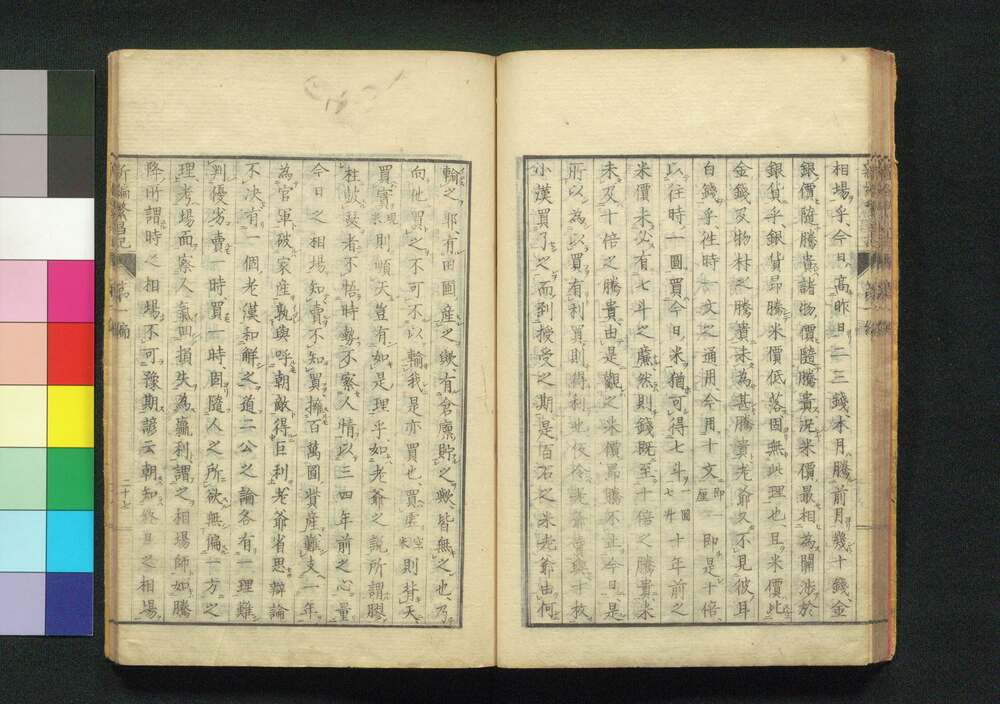 相場乎今日高昨日二三錢本月騰前月幾十錢金
銀價隨騰貴諸物價隨騰貴況米價最相為關渉於
銀貨乎銀貨昂騰米價低落固無此理也且米價比
金錢及物材之騰貴未為甚騰貴老爺又不見彼耳
白錢乎徃時一文之通用今用十文即一厘即是十倍
以往時一圓買今日米猶可得七斗一圓七斗十年前之
米價米必有七斗之廉然則錢既至十倍之騰貴米
未及十倍之騰貴由是觀之米價昂騰不止今日是
所以為以買有利買則得利也
小漢買了之而到授受之期是百石之米老爺由何
輸之耶有田圃産之歟有倉廩貯之歟皆無之也乃
向他買之不可不以輸我是亦買也買虚空米則背天
買實現米則順天豈有如是理乎如老爺之說所謂膠
柱鼓瑟者不悟時勢不察人情以三四年前之心量
今日之相場知賣不知買擁百萬圓貲産難支一年
為官軍破家産孰與呼朝敵得巨利老爺省思辯論
不决有一個老漢和解之道二公之論各有一理難
判優劣賣一時買一時固隨人之所欲無偏一方之
理考場面察人氣凹損失為贏利謂之相場師如騰
降所謂時之相場不可豫期諺云朝知終日之相場
新編繁昌記 第一編 二十七